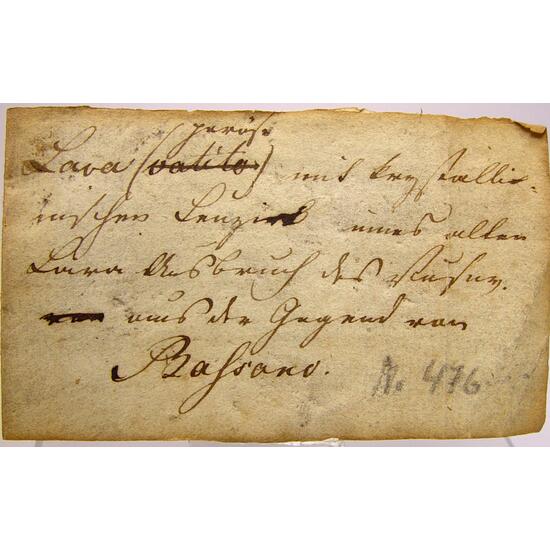 porös
Lava (solito) mit krystalli-
nischen Leuzit eines alten
Lava Ausbruch des Vesuv.
aus der Gegend von
Bassano.
N. 476